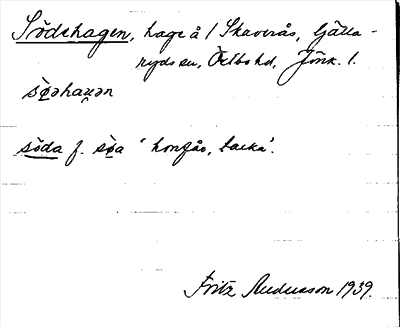 Södehagen, hage å 1 Skaverås, Gälla-
ryds sn, Östbo hd, Jönk. l.
sö̀əhaɣən
söda f. sö̀a 'honfår, tacka'.
Fritz Andersson 1939.